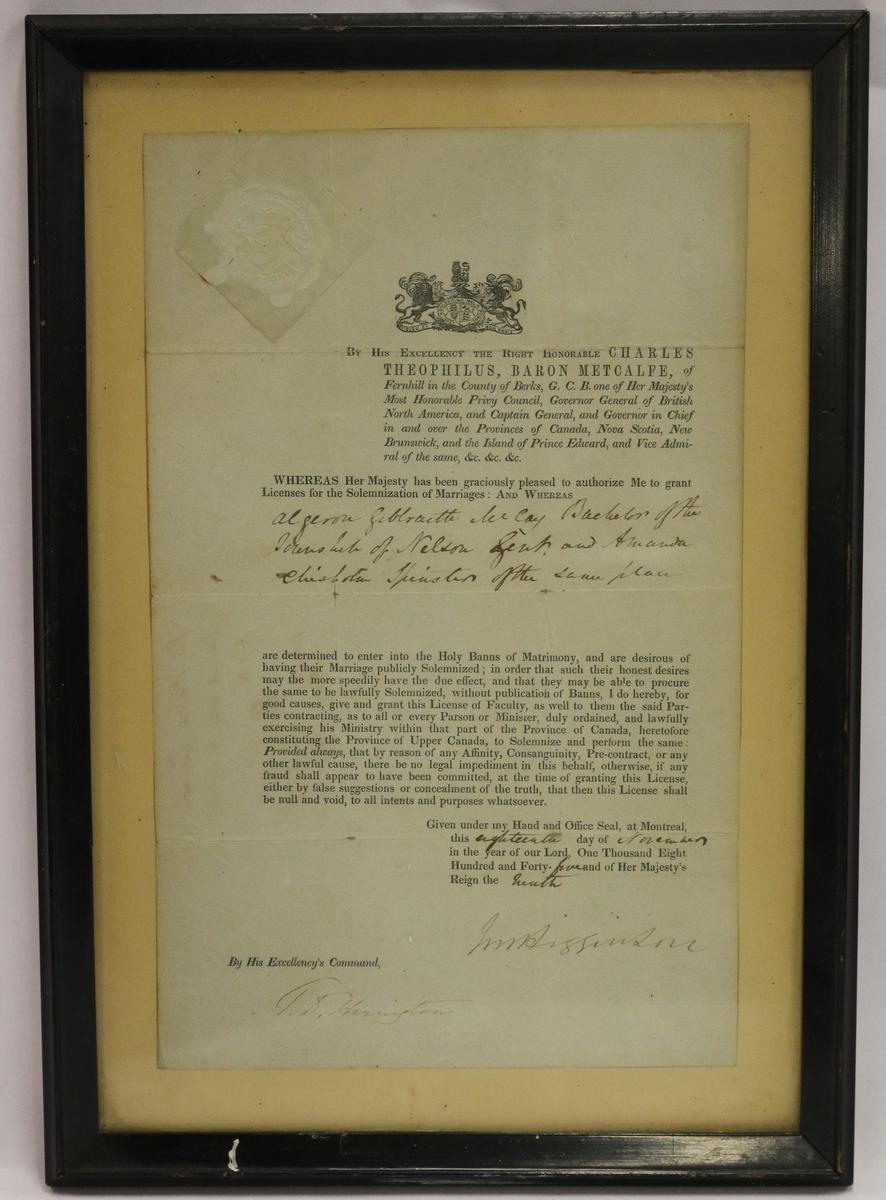 BY HIS EXCELLENCY THE RIGHT HONORABLE CHARLES
THEOPHILUS, BARON METCALFE, of
Fernhill in the County of Berks, G. C. B. one of Her Majesty's
Most Honorable Privy Council, Governor General of British
North America, and Captain General, and Governor in Chief
in and over the Provinces of Canada, Nova Scotia, New
Brunswick, and the Island of Prince Edward, and Vice Admi-
ral of the same, &c. &c. &c.
WHEREAS Her Majesty has been graciously pleased to authorize Me to grant
Licenses for the Solemnization of Marriages: AND WHEREAS
Algeron McCay Bachelor of the
Township of Nelson Gent and Amanda
Chisholm Spinster of the same place
are determined to enter into the Holy Banns of Matrimony, and are desirous of
having their Marriage publicly Solemnized; in order that such their honest desires
may the more speedily have the due effect, and that they may be able to procure
the same to be lawfully Solemnized, without publication of Banns, I do hereby, for
good causes, give and grant this License of Faculty, as well to them the said Par-
ties contracting, as to all or every Parson or Minister, duly ordained, and lawfully
exercising his Ministry within that part of the Province of Canada, heretofore
constituting the Province of Upper Canada, to Solemnize and perform the same:
Provided always, that by reason of any Affinity, Consanguinity, Pre-contract, or any
other lawful cause, there be no legal impediment in this behalf, otherwise, if any
fraud shall appear to have been committed, at the time of granting this License,
either by false suggestions or concealment of the truth, that then this License shall
be null and void, to all intents and purposes whatsoever.
Given under my Hand and Office Seal, at Montreal,
this eighteenth day of November
in the year of our Lord, One Thousand Eight
Hundred and Forty-five and of Her Majesty's
Reign the
JM Higginson
By His Excellency's Command,
T. D. Harington